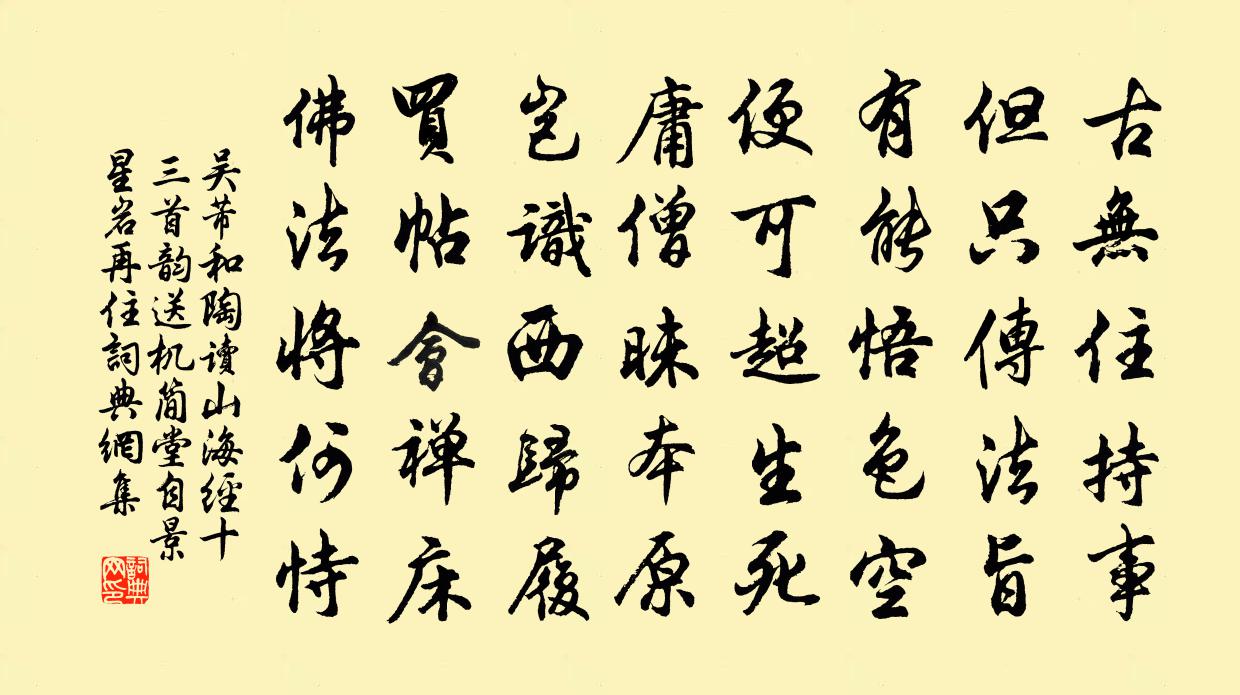 古無住持事
但只傳法旨
有能悟色空
便可超生死
庸僧昧本原
豈識西歸履
買帖會禅床
佛法將何恃
吴芾和陶讀山海經十
三首韵送机简堂自景
星岩再住詞典網集
詞典網印